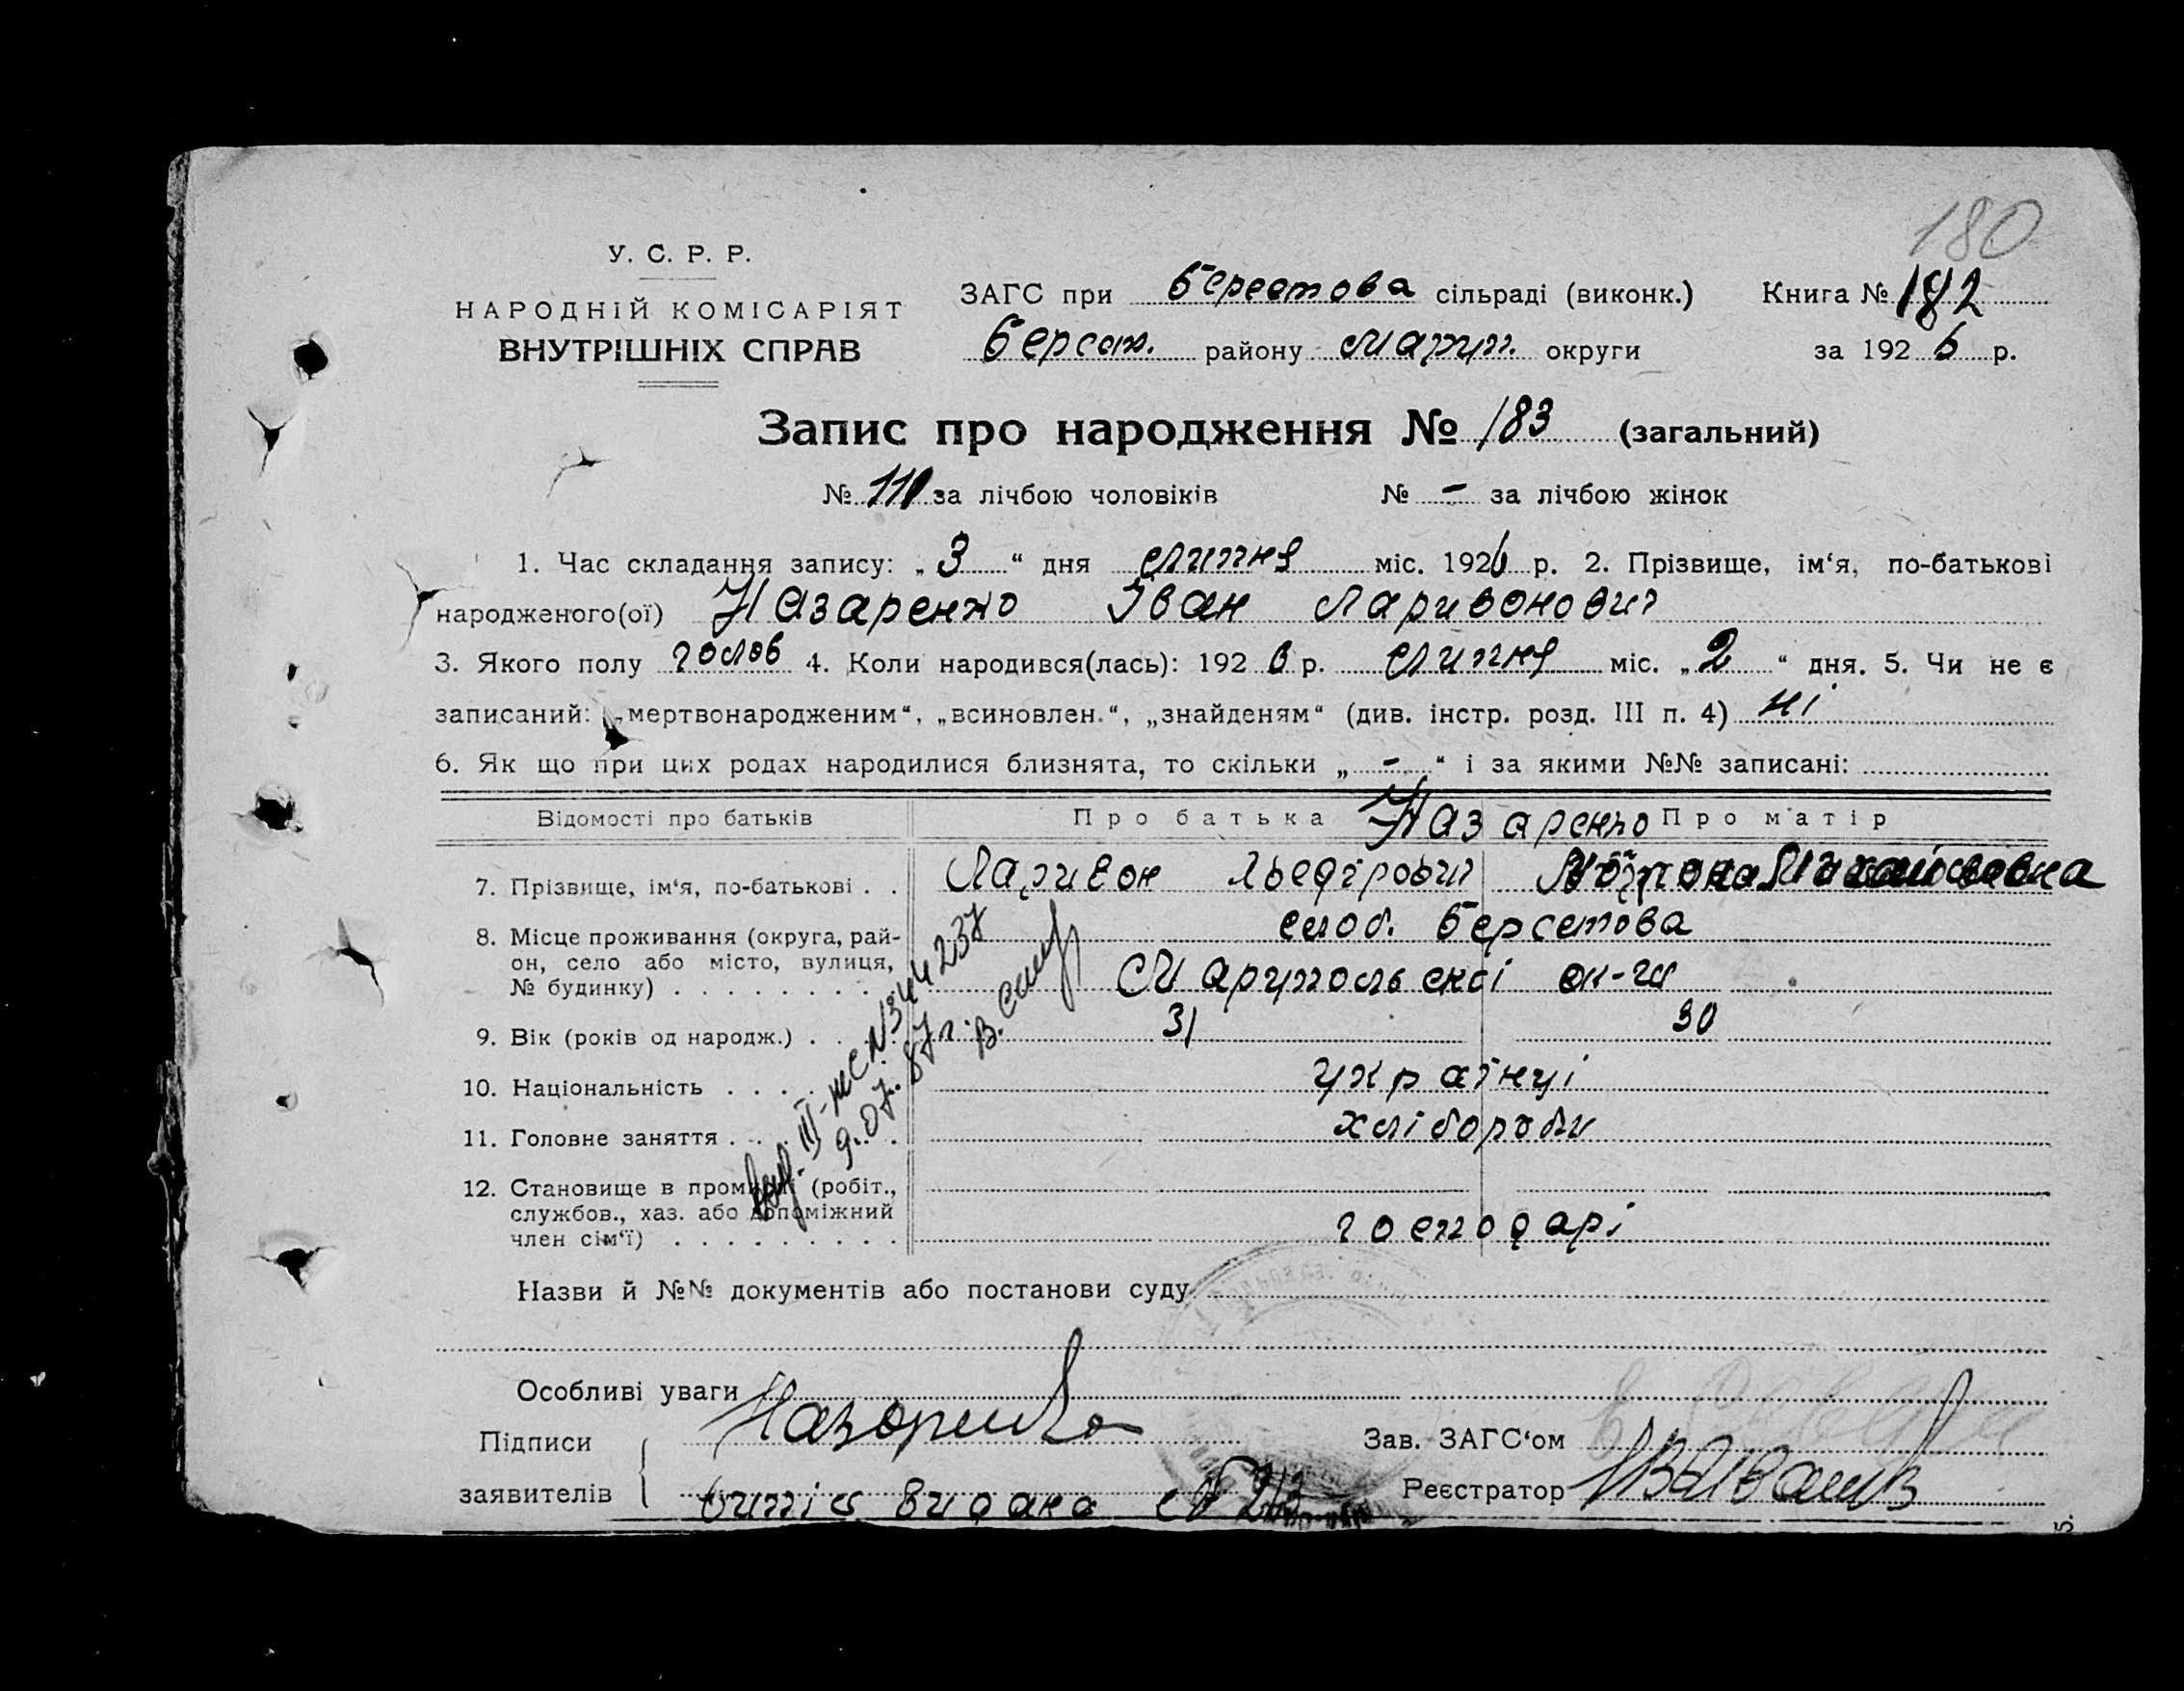 180
У. С. Р. Р.
НАРОДНІЙ КОМІСАРІЯТ
ВНУТРІШНІХ СПРАВ
ЗАГС при Берестова сільраді (виконк.) Книга № 182
Берест. району Маріуп. округи за 1926 р.
Запис про народження № 183 (загальний)
№ 110 за лічбою чоловіків № - за лічбою жінок
1. Час складання запису: „3“ дня липня міс. 1926 р. 2. Прізвище, ім‘я, по-батькові
народженого(ої) Назаренко Іван Ларивонович
3. Якого полу чолов 4. Коли народився(лась): 1926 р. липня міс. „2“ дня. 5. Чи не є
записаний: „мертвонародженим“, „всиновлен.“, „знайденям“ (див. інстр. розд. III п. 4) ні
6. Як що при цих родах народилися близнята, то скільки „-“ і за якими №№ записані:
Відомості про батьків Про батька Назаренко Про матір
7. Прізвище, ім‘я, по-батькові . . Ларивон
8. Місце проживання (округа, рай-
он, село або місто, вулиця,
№ будинку) . . . . . . . . .
слоб. Берестова
Маріупольскої ок-ги
9. Вік (років од народж.) . . 31 30
10. Національність . . . . українці
11. Головне заняття . . . . хлібороби
12. Становище в промислі (робіт.,
службов., хаз. або допоміжний
член сім‘ї) . . . . . . . . .
господарі
III-жс № 344237
9.07.87 г.
Назви й №№ документів або постанови суду
Особливі уваги
Підписи
заявителів
Назаренко
видана №
Зав. ЗАГС‘ом
Реєстратор